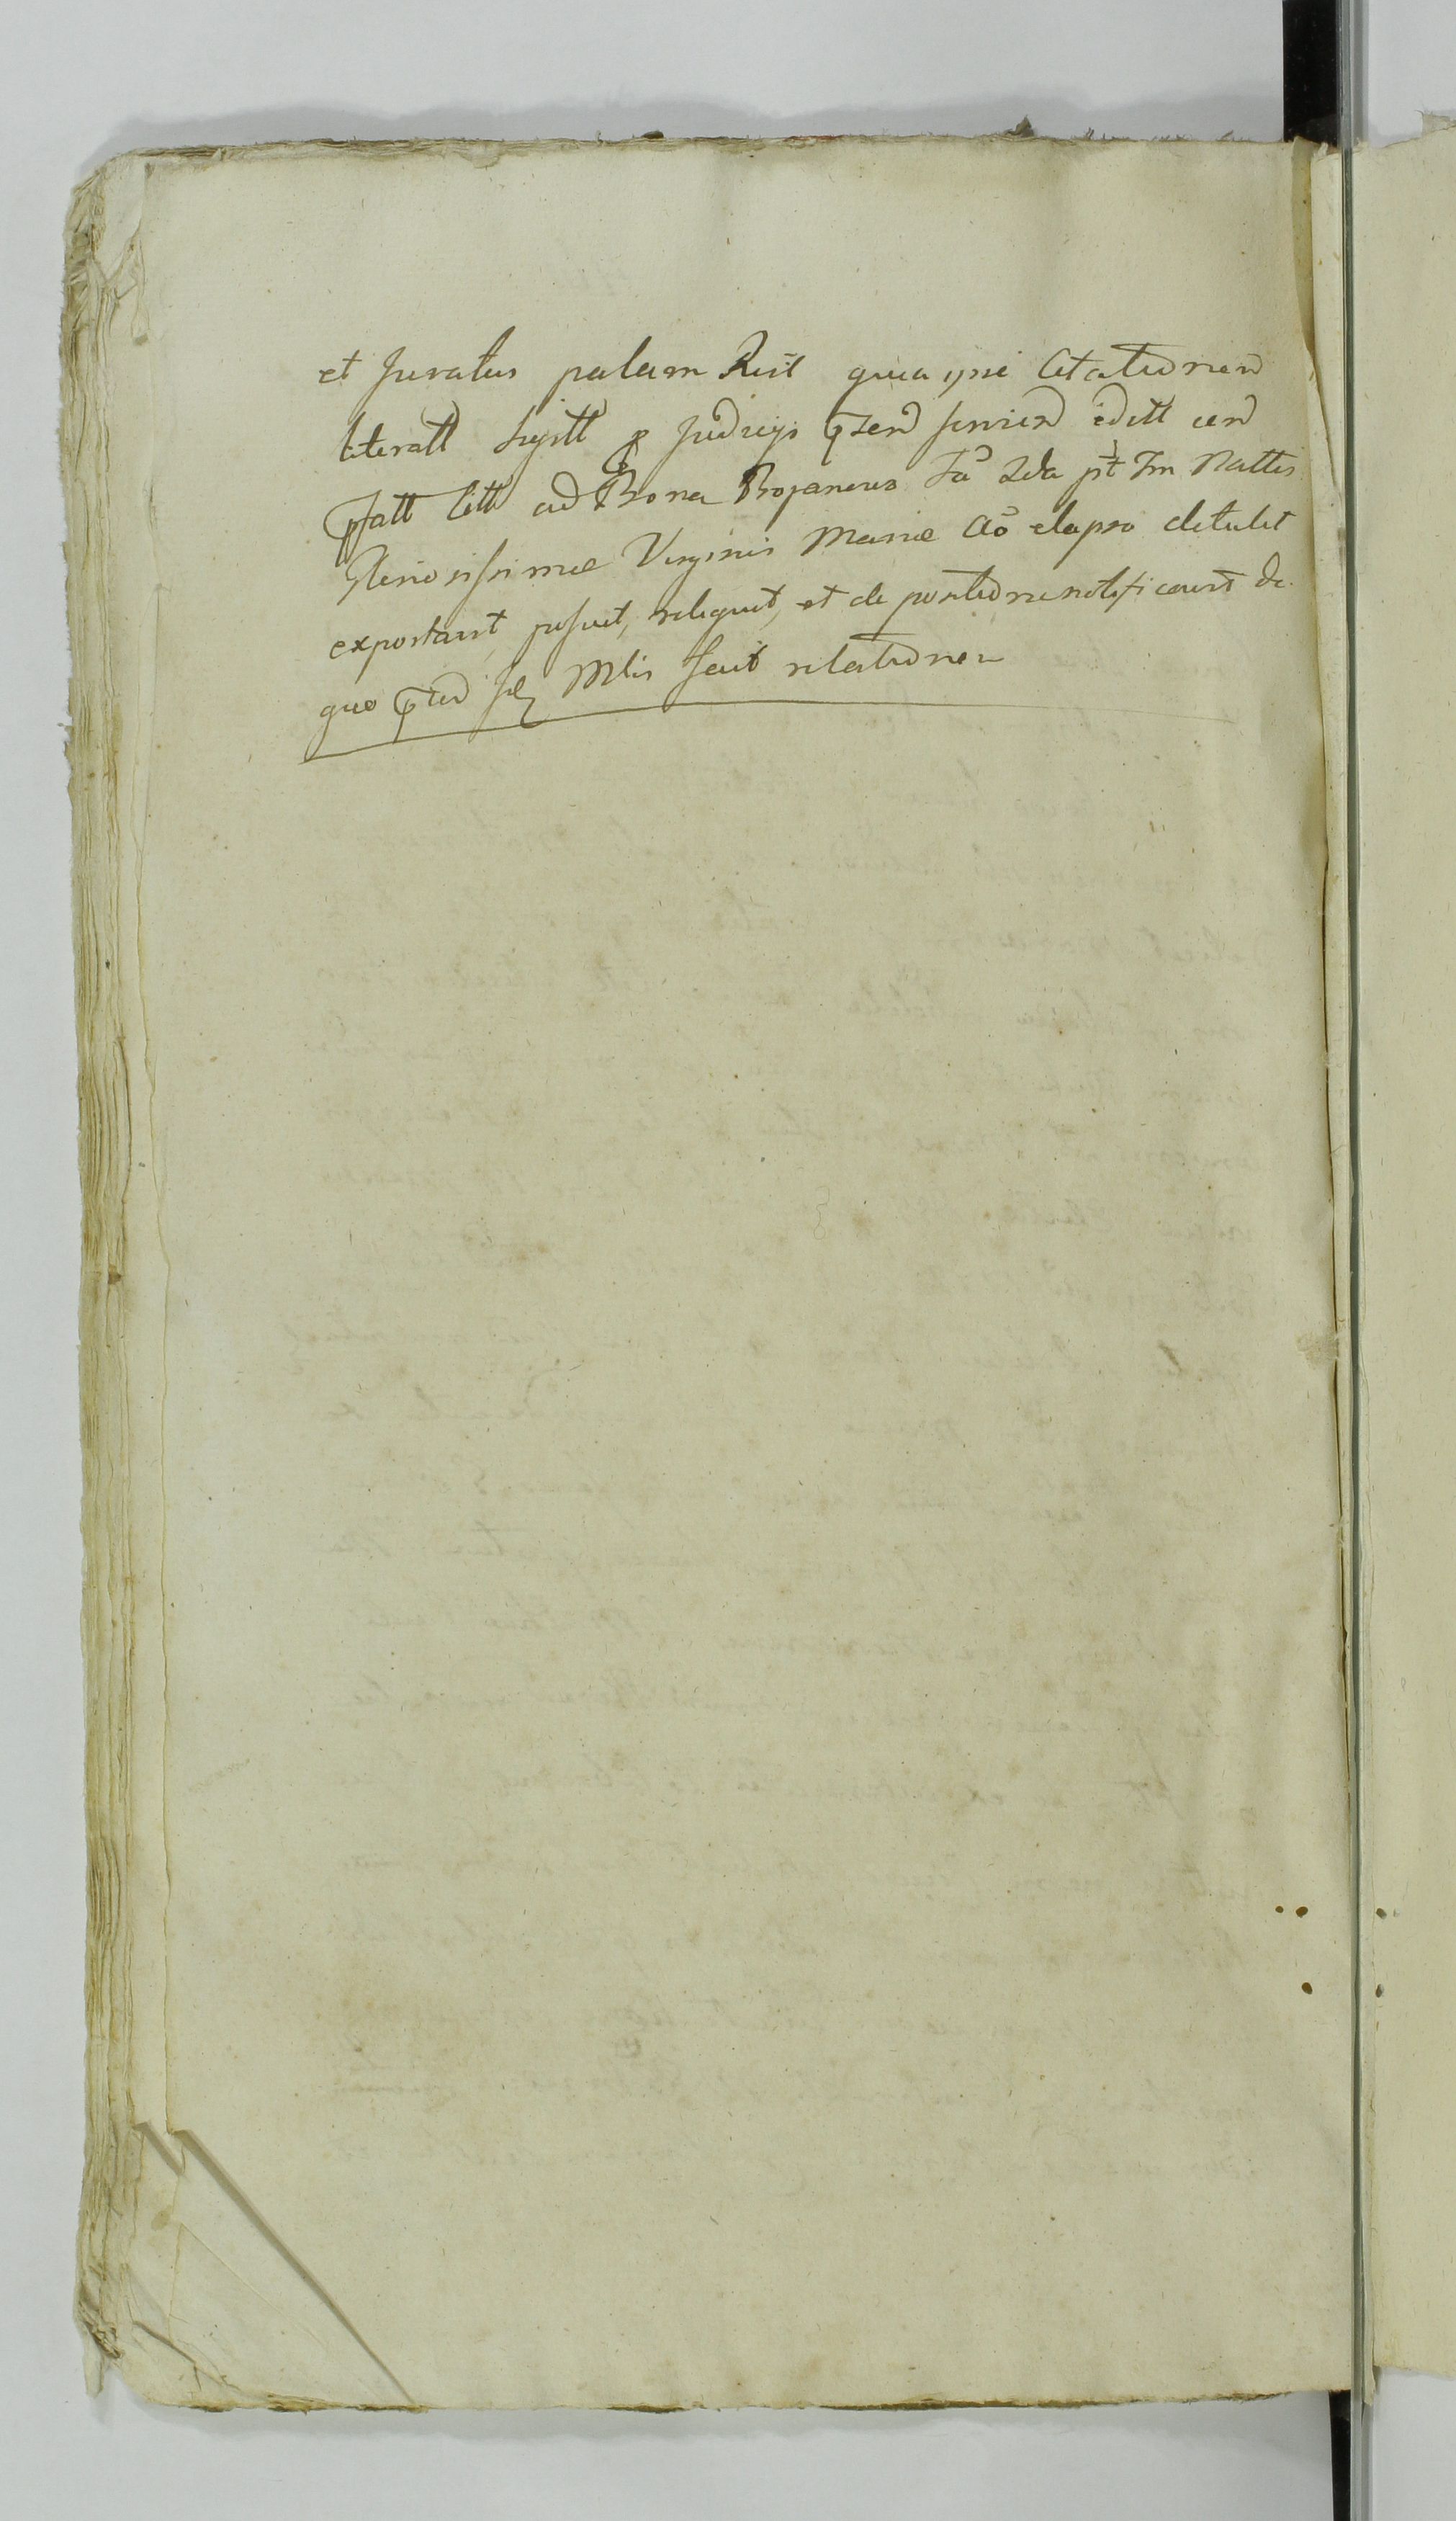 et Juratus palam Rcūt quia ipse Citatōnen
literatt Sigitt p Judicijs pzen servien edtt cen
psatt litt ad Bona Bojanowo Fa 2da pt Fm Nattis
Gloriosissimae Virginis Mariae Aō elapso detulit
exportavit, posuit, reliquit, et de positōne notificavit de
quo pted Mtis fecit relatōnem